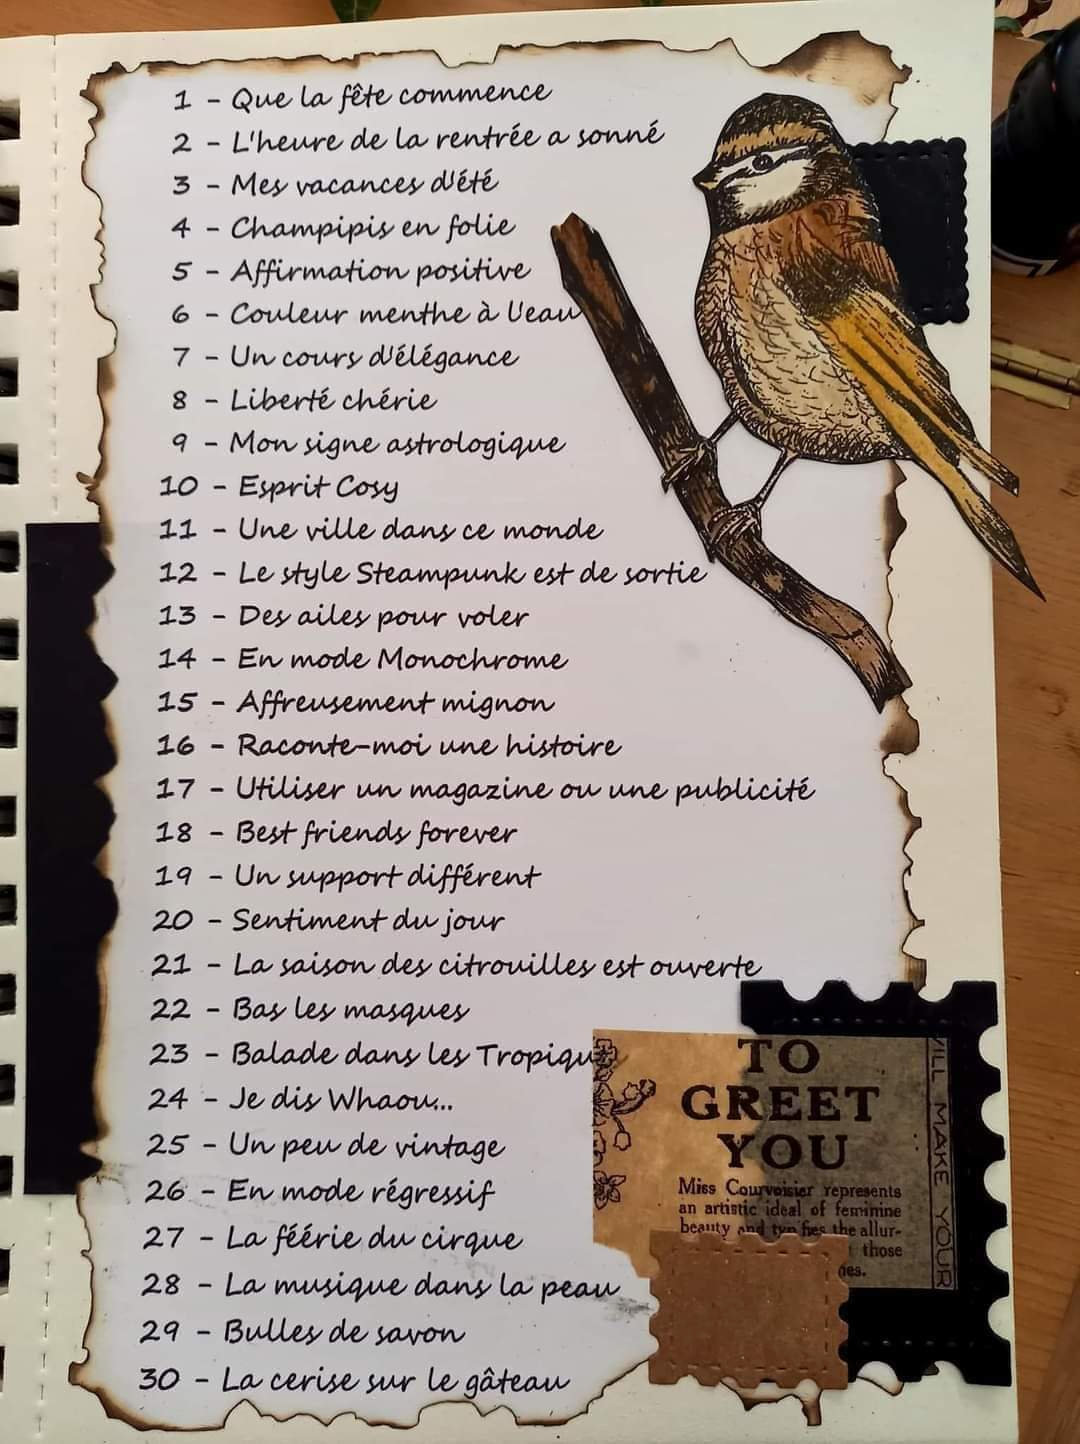 1 - Que la fête commence
2 - L'heure de la rentrée a sonné
3 - Mes vacances d'été
4 - Champipis en folie
5 - Affirmation positive
6 - Couleur menthe à l'eau
7 - Un cours d'élégance
8 - Liberté chérie
9 - Mon signe astrologique
10 - Esprit Cosy
11 - Une ville dans ce monde
12 - Le style Steampunk est de sortie
13 - Des ailes pour voler
14 - En mode Monochrome
15 - Affreusement mignon
16 - Raconte-moi une histoire
17 - Utiliser un magazine ou une publicité
18 - Best friends forever
19 - Un support différent
20 - Sentiment du jour
21 - La saison des citrouilles est ouverte
22 - Bas les masques
23 - Balade dans les Tropiqu
24 - Je dis Whaou...
25 - Un peu de vintage
26 - En mode régressif
27 - La féérie du cirque
28 - La musique dans la peau
29 - Bulles de savon
30 - La cerise sur le gâteau
TO
GREET
YOU
Miss Courvoisier represents
an artistic ideal of feminine
beauty and the allur-
those
MAKE YOUR